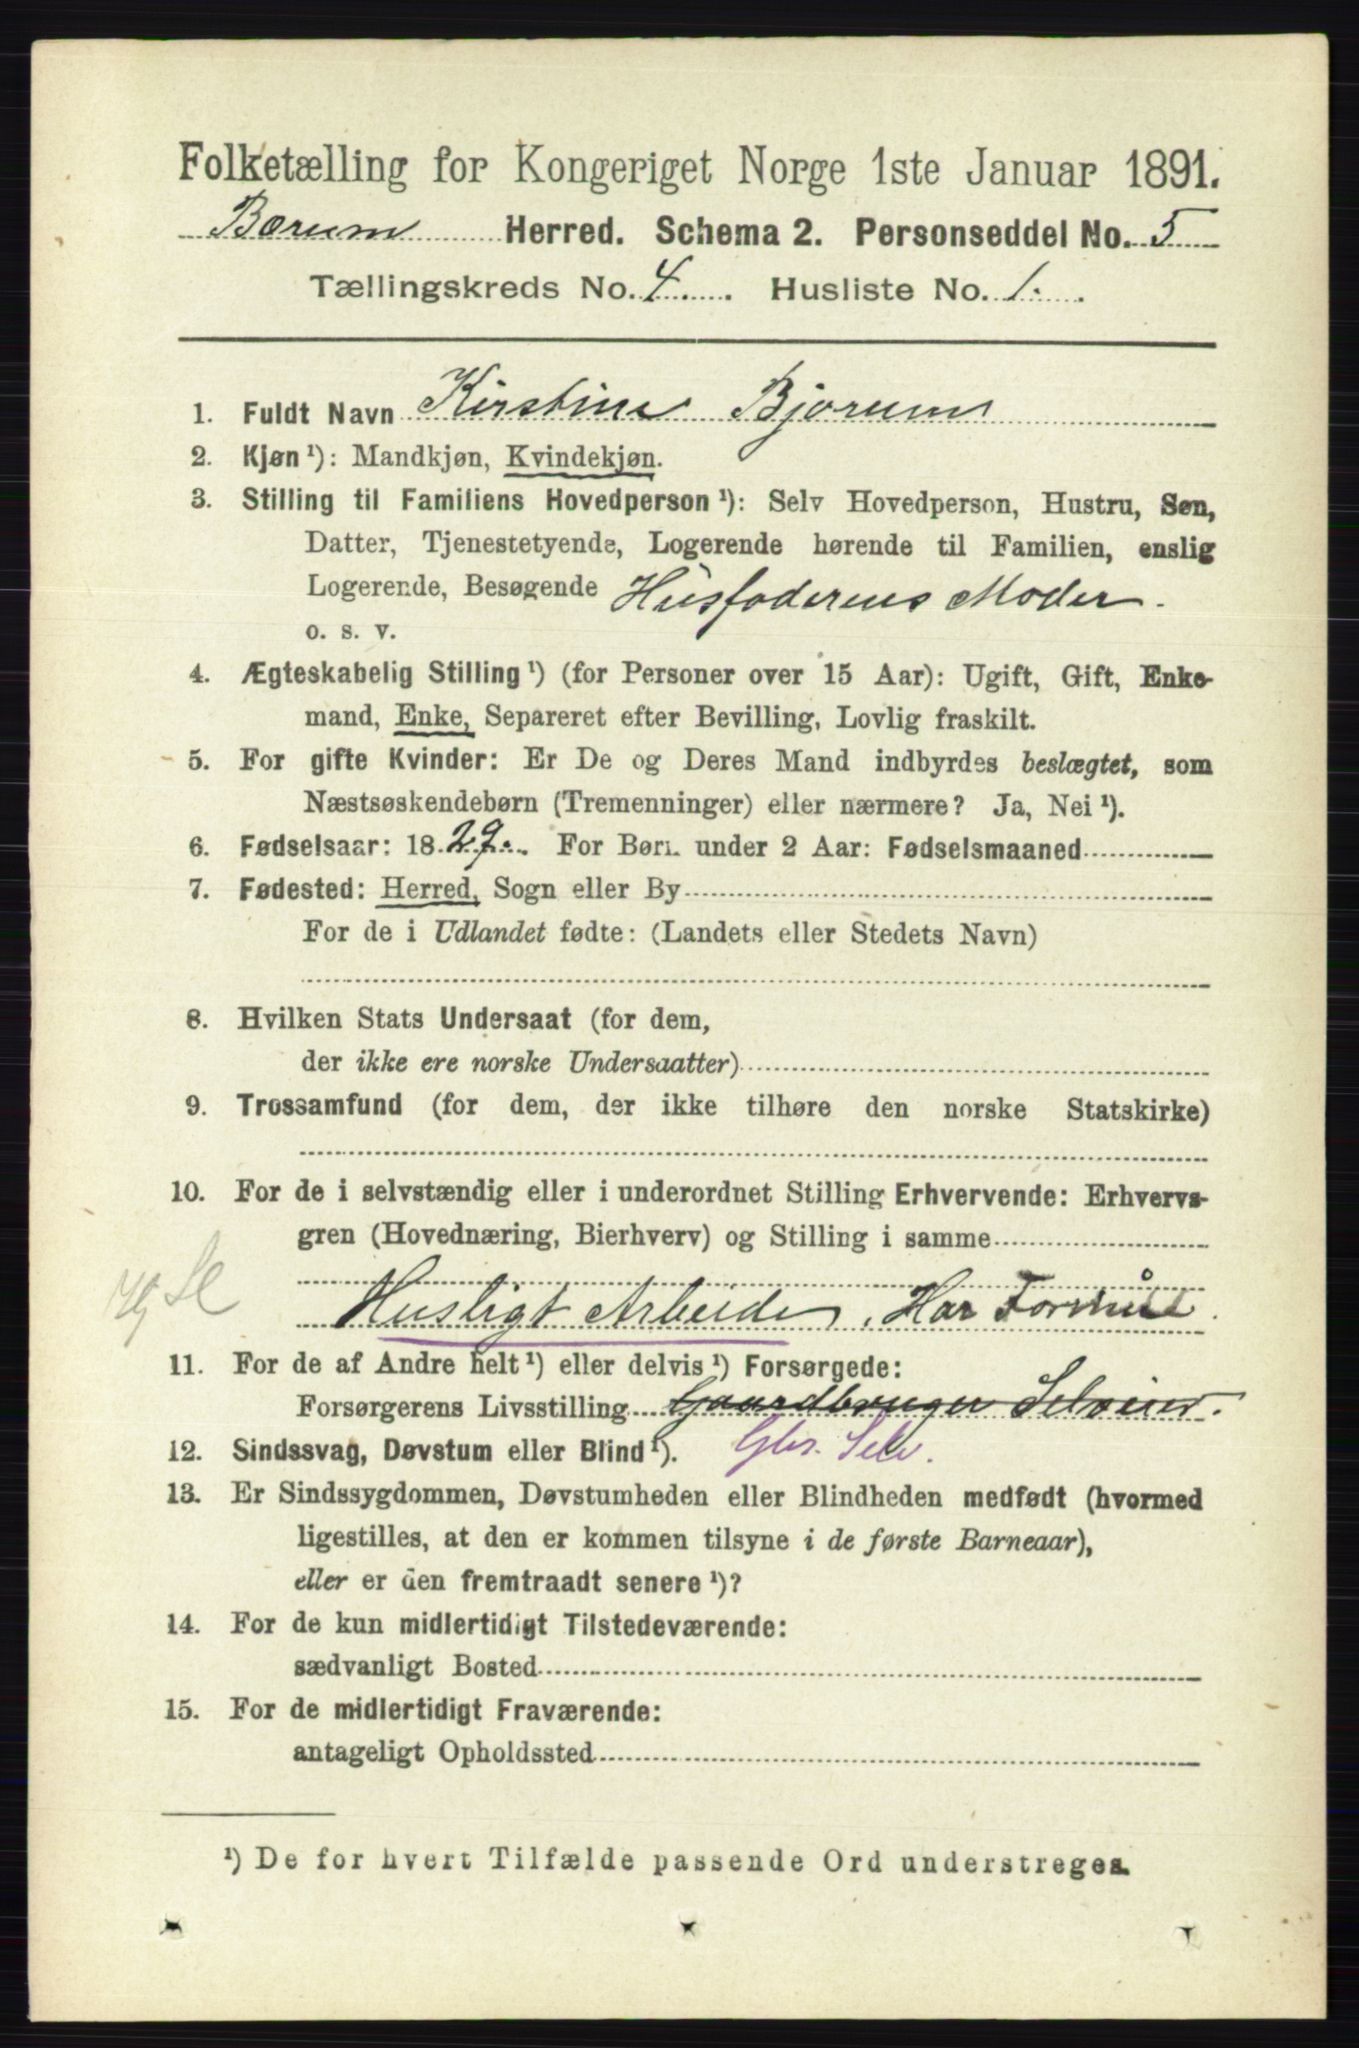 Folketælling for Kongeriget Norge 1ste Januar 1891.
Bærum Herred. Schema 2. Personseddel No. 5
Tællingskreds No. 4. Husliste No. 1.
1. Fuldt Navn Kirstine Bjorum
2. Kjøn¹): Mandkjøn, Kvindekjøn.
3. Stilling til Familiens Hovedperson¹): Selv Hovedperson, Hustru, Søn,
Datter, Tjenestetyende, Logerende hørende til Familien, enslig
Logerende, Besøgende Husfaderens Moder.
o. s. v.
4. Ægteskabelig Stilling¹) (for Personer over 15 Aar): Ugift, Gift, Enke-
mand, Enke, Separeret efter Bevilling, Lovlig fraskilt.
5. For gifte Kvinder: Er De og Deres Mand indbyrdes beslægtet, som
Næstsøskendebørn (Tremenninger) eller nærmere? Ja, Nei¹).
6. Fødselsaar: 1829. For Børn under 2 Aar: Fødselsmaaned
7. Fødested: Herred, Sogn eller By
For de i Udlandet fødte: (Landets eller Stedets Navn)
8. Hvilken Stats Undersaat (for dem,
der ikke ere norske Undersaatter)
9. Trossamfund (for dem, der ikke tilhøre den norske Statskirke)
10. For de i selvstændig eller i underordnet Stilling Erhvervende: Erhvervs-
gren (Hovednæring, Bierhverv) og Stilling i samme
Husligt Arbeide, Har Formue
11. For de af Andre helt¹) eller delvis¹) Forsørgede:
Forsørgerens Livsstilling Gaardbruger Selveier.
12. Sindssvag, Døvstum eller Blind¹). Gbr. Selv.
13. Er Sindssygdommen, Døvstumheden eller Blindheden medfødt (hvormed
ligestilles, at den er kommen tilsyne i de første Barneaar),
eller er den fremtraadt senere¹)?
14. For de kun midlertidigt Tilstedeværende:
sædvanligt Bosted
15. For de midlertidigt Fraværende:
antageligt Opholdssted
¹) De for hvert Tilfælde passende Ord understreges.